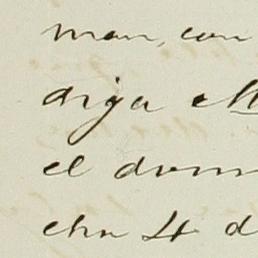 man, con
diga M
el dom
cha 4 d